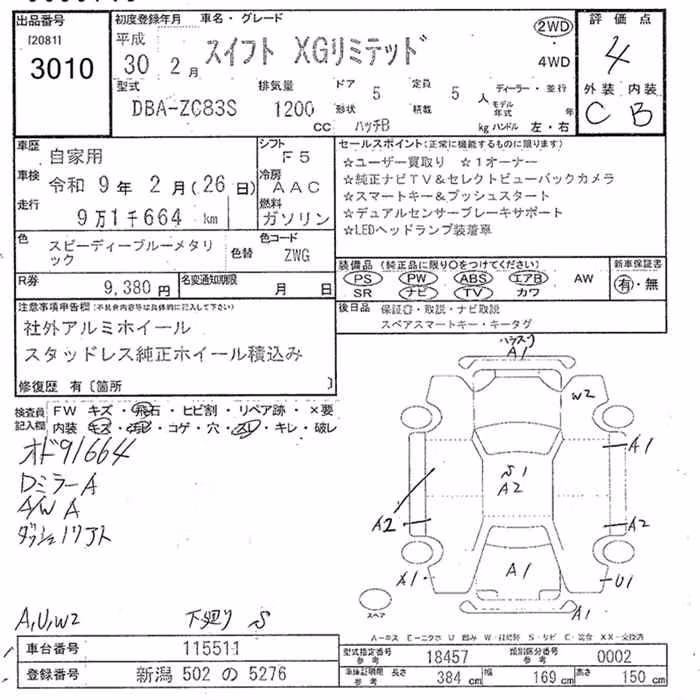 出品番号
[2081]
3010
初度登録年月 車名・グレード
平成
30 2月
スイフト XGリミテッド
2WD
4WD
評価点
4
外装 内装
C B
型式
DBA-ZC83S
排気量
1200
cc
ドア 5
形状 ハッチB
定員 5 人
積載 kg
ディーラー・並行
モデル年式 年
ハンドル 左・右
車歴 自家用
車検 令和 9年 2月(26日)
走行 9万1千664 km
シフト F5
冷房 AAC
燃料 ガソリン
色 スピーディーブルーメタリック
色替
色コード ZWG
R券 9,380円
名変通知期限 月 日
セールスポイント(正常に機能するものに限ります)
☆ユーザー買取り ☆1オーナー
☆純正ナビTV&セレクトビューバックカメラ
☆スマートキー&プッシュスタート
☆デュアルセンサーブレーキサポート
☆LEDヘッドランプ装着車
装備品(純正品に限り〇をつけてください)
PS PW ABS エアB AW
SR ナビ TV カワ
新車保証書
有・無
後日品 保証書・取説・ナビ取説
スペアスマートキー・キータグ
注意事項申告欄(不具合内容等は具体的に記入して下さい)
社外アルミホイール
スタッドレス純正ホイール積込み
修復歴 有〔箇所 〕
検査員記入欄
FW キズ・飛石・ヒビ割・リペア跡・×要
内装 キズ・汚レ・コゲ・穴・スレ・キレ・破レ
オド91664
DミラーA
A/W A
A1
W2
A1
S1
A2
A2
A2
A1
X1
U1
A1
スペア
A,U,W2
下廻り S
車台番号 115511
登録番号 新潟 502 の 5276
型式指定番号 参考 18457
類別区分番号 参考 0002
車体証明期限 参考 長さ 384 cm 幅 169 cm 高さ 150 cm